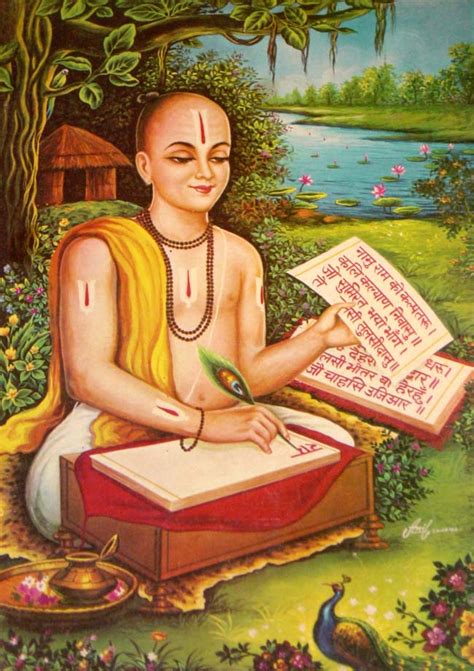 नामु राम को कल्पतरू
कलि कल्याण निवासु ॥
जो सुमिरत भयो भाँग
ते
तुलसी तुलसीदासु ॥
द्वार ॥
तुलसी भीतर बाहेरहुँ
जौं चाहसि उजिआर ॥
राम